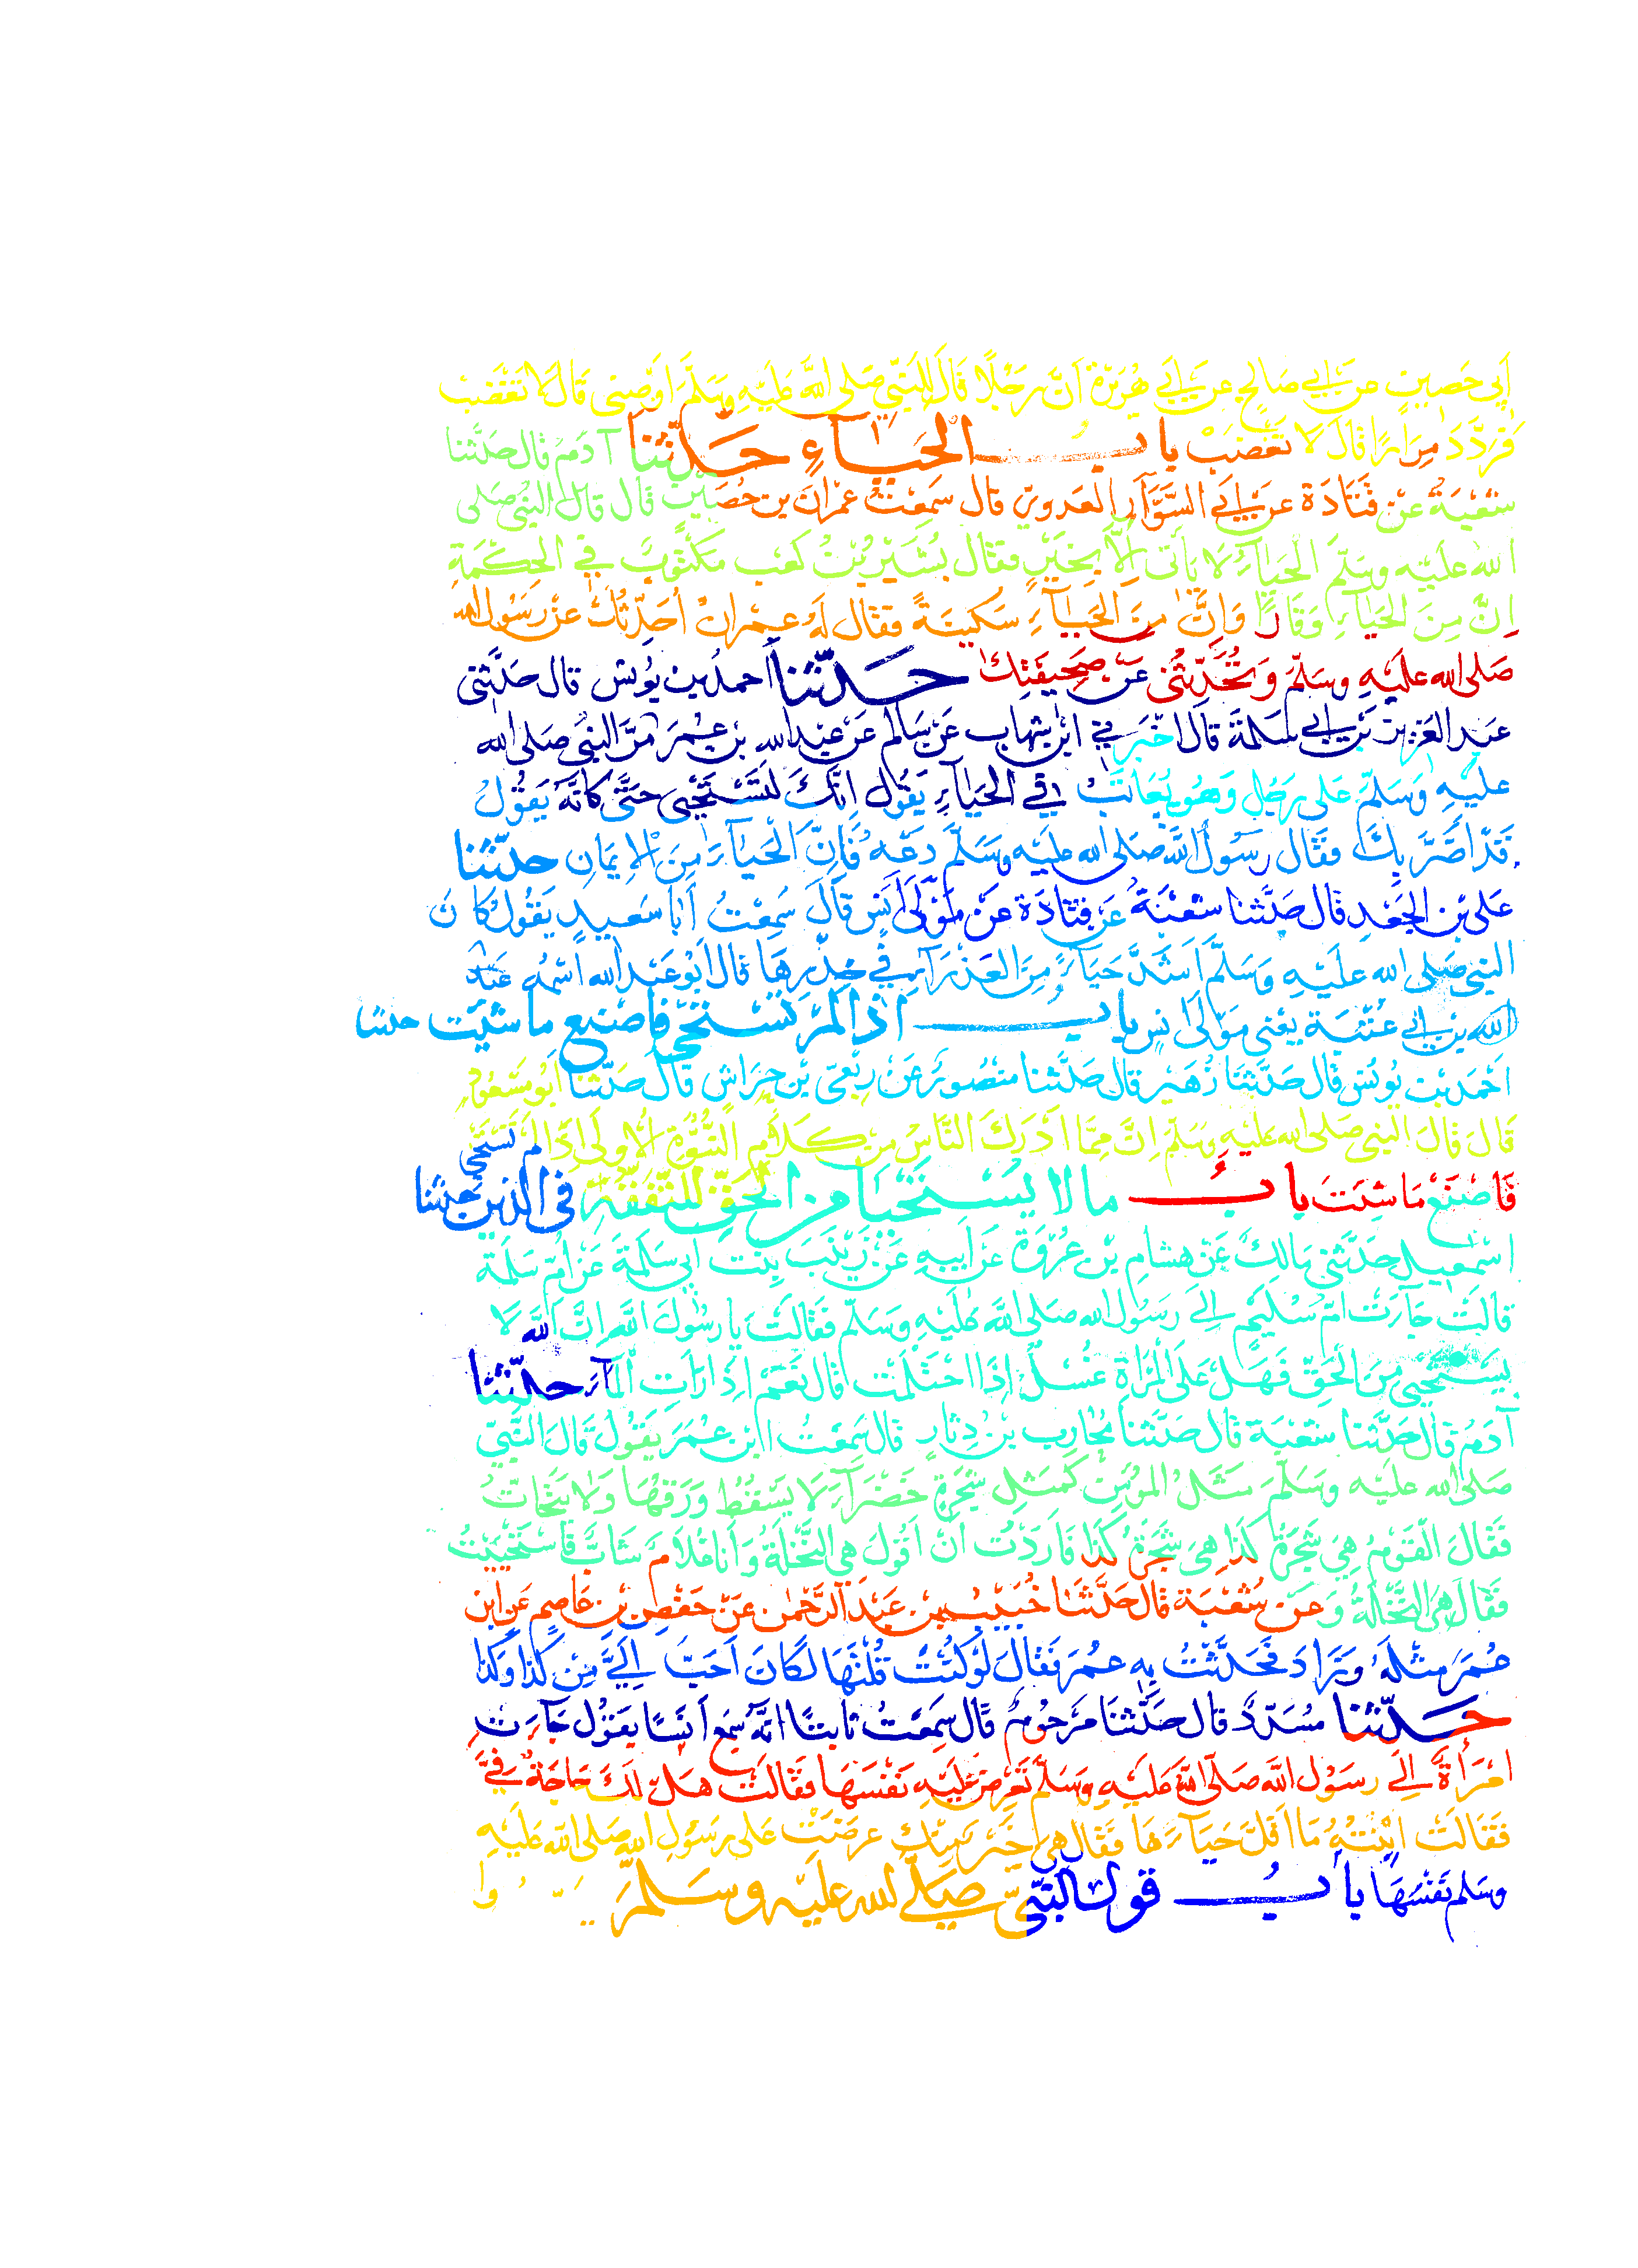 أَبِي حَصِينٍ عن أبي صَالِحٍ عن أبي هُرَيْرَةَ أنَّ رَجُلًا قَالَ لِلنَّبِيِّ صَلى اللهُ عَلَيْهِ وَسَلَّمَ أَوْصِنِي قَالَ لَا تَغْضَبْ
فَرَدَّدَ مِرَارًا قَالَ لَا تَغْضَبْ باب الحَيَاءِ حَدَّثَنَا آدَمُ قال حَدَّثَنَا
شعْبَةُ عَنْ قَتَادَةَ عن أبي السَّوَّارِ العَدَوِيِّ قال سَمِعْتُ عِمْرَانَ بن حُصَيْنٍ قال قال النبيُّ صَلى
الله عَلَيْهِ وسَلَّمَ الحَيَاءُ لا يَأْتي إلَّا بِخَيْرٍ فقال بُشَيْرُ بْنُ كَعْبٍ مَكْتُوبٌ في الحِكْمَةِ
إنَّ مِنَ الحَيَاءِ وَقَارًا وَإنَّ مِنَ الحَيَاءِ سَكِينَةً فقال لَهُ عِمْرَانُ أُحَدِّثُكَ عَنْ رَسُولِ الله
صَلى الله عَلَيْهِ وسَلَّمَ وَتُحَدِّثُنِي عَنْ صَحِيفَتِكَ حَدَّثَنَا أحمدُ بن يُونُسَ قال حَدَّثَنِي
عَبْد العَزِيزِ بْنُ أبي سَلمَةَ قال أخْبَرَنِي ابْنُ شِهَابٍ عَنْ سَالِمٍ عَنْ عَبْدِ اللهِ بْنِ عُمَرَ مَرَّ النبيُّ صَلى الله
عَلَيْهِ وَسَلَّمَ عَلى رَجُلٍ وَهُوَ يُعَاتَبُ في الحَيَاءِ يَقُولُ إنَّكَ لَتَسْتَحْيِي حَتَّى كَأَنَّهُ يَقُولُ
قَدْ أَضَرَّ بِكَ فقَال رَسُولُ الله صَلى الله عَلَيْهِ وسَلَّمَ دَعْهُ فَإنَّ الحَيَاءَ مِنَ الإيمَانِ حدثنا
عَلى بْنُ الجَعْدِ قال حَدَّثَنا شُعْبَةُ عَنْ قَتَادَةَ عَنْ مَوْلَى أَنَسٍ قَالَ سَمِعْتُ أَبَا سَعِيدٍ يَقُولُ كَانَ
النبي صَلى الله عَلَيْهِ وَسَلَّمَ أشَدَّ حَيَاءً مِنَ العَذْرَاءِ فِي خِدْرِهَا قال أبُو عَبْدِ الله اسْمُهُ عَبْدُ
الله بن أبي عُتْبَةَ يَعْنِي مَوْلَى أنَسٍ باب إذَا لَمْ تَسْتَحِي فَاصْنَع مَا شِئْتَ حدثنا
أحْمَد بْن يُونُسَ قال حَدَّثَنَا زُهَيْر قال حَدَّثَنا مَنْصُورٌ عَنْ رِبْعِيِّ بْنِ حِرَاشٍ قَالَ حَدَّثَنا أبُو مَسْعُودٍ
قَالَ قَالَ النبي صَلى الله عَلَيْهِ وسَلَّمَ إنَّ مِمَّا أدْرَكَ النَّاسُ مِنْ كَلَامِ النُّبُوَّةِ الأولَى إذَا لَمْ تَسْتَحِي
فَاصْنَعْ مَا شِئْتَ باب ما لا يُسْتَحْيَا مِنَ الحَقِّ لِلتَّفَقُّهِ فِي الدِّينِ حدثنا
إسْمعِيل حَدَّثَنِي مَالِكٌ عَنْ هِشَامِ بْنِ عُرْوَةَ عَنْ أبِيهِ عَنْ زَيْنَبَ بِنْتِ أبِي سَلَمَةَ عَنْ أُمِّ سَلَمَةَ
قَالَتْ جَاءَتْ أمُّ سُلَيْمٍ إلَى رَسُولِ الله صَلى اللهُ عَلَيْهِ وَسَلَّمَ فَقَالَتْ يَا رَسُولَ اللهِ إنَّ الله لَا
يَسْتَحْيِي مِنَ الحَقِّ فَهَلْ عَلَى المَرْأةِ غُسْلٌ إذَا احْتَلَمَتْ قَالَ نَعَمْ إذَا رَأتِ المَاءَ حدثنا
آدَمُ قَالَ حَدَّثَنا شُعْبَة قَال حَدَّثَنا مُحَارِب بْنُ دِثَارٍ قال سَمِعْتُ ابْنَ عُمَرَ يَقُولُ قَالَ النَّبِيُّ
صَلى الله عَلَيْهِ وَسَلَّمَ مَثَلُ المُؤْمِنِ كَمَثَلِ شَجَرَةٍ خَضْرَاءَ لَا يَسْقُطُ وَرَقُهَا وَلَا يَتَحَاتُّ
فَقَالَ القَوْمُ هِيَ شَجَرَةُ كَذَا هِيَ شَجَرَةُ كَذَا فَأرَدْتُ أنْ أقُولَ هِيَ النَّخْلَةُ وَأنَا غُلَامٌ شَابٌّ فَاسْتَحْيَيْتُ
فَقَالَ هِيَ النَّخْلَةُ وَعَنْ شُعْبَةَ قَالَ حَدَّثَنَا خُبَيْبُ بْن عَبْدِ الرَّحْمنِ عَنْ حَفْصِ بْنِ عَاصِمٍ عَنِ ابْنِ
عُمَرَ مِثْلَهُ وَزَادَ فَحَدَّثْتُ بِهِ عُمَرَ فَقَالَ لَوْ كُنْتَ قُلْتَهَا لَكَانَ أحَبَّ إلَيَّ مِنْ كَذَا وَكَذَا
حَدَّثَنَا مُسَدَّدٌ قال حَدَّثَنَا مَرْحُومٌ قَالَ سَمِعْتُ ثَابِتًا أنَّهُ سَمِعَ أنَسًا يَقُولُ جَاءَتِ
امْرَأةٌ إلَى رَسُولِ اللهِ صَلَى اللهُ عَلَيْهِ وَسَلَّمَ تَعْرِضُ عَلَيْهِ نَفْسَهَا فَقَالَتْ هَلْ لَكَ حَاجَةٌ فِيَّ
فَقَالَتْ ابْنَتُهُ مَا أقَلَّ حَيَاءَهَا فَقَالَ هِيَ خَيْرٌ مِنْكِ عَرَضَتْ عَلى رَسُولِ الله صَلى الله عَلَيْهِ
وسَلم نَفْسَهَا باب قول النَّبِيِّ صَلَّى الله عَلَيْهِ وسَلَّمَ